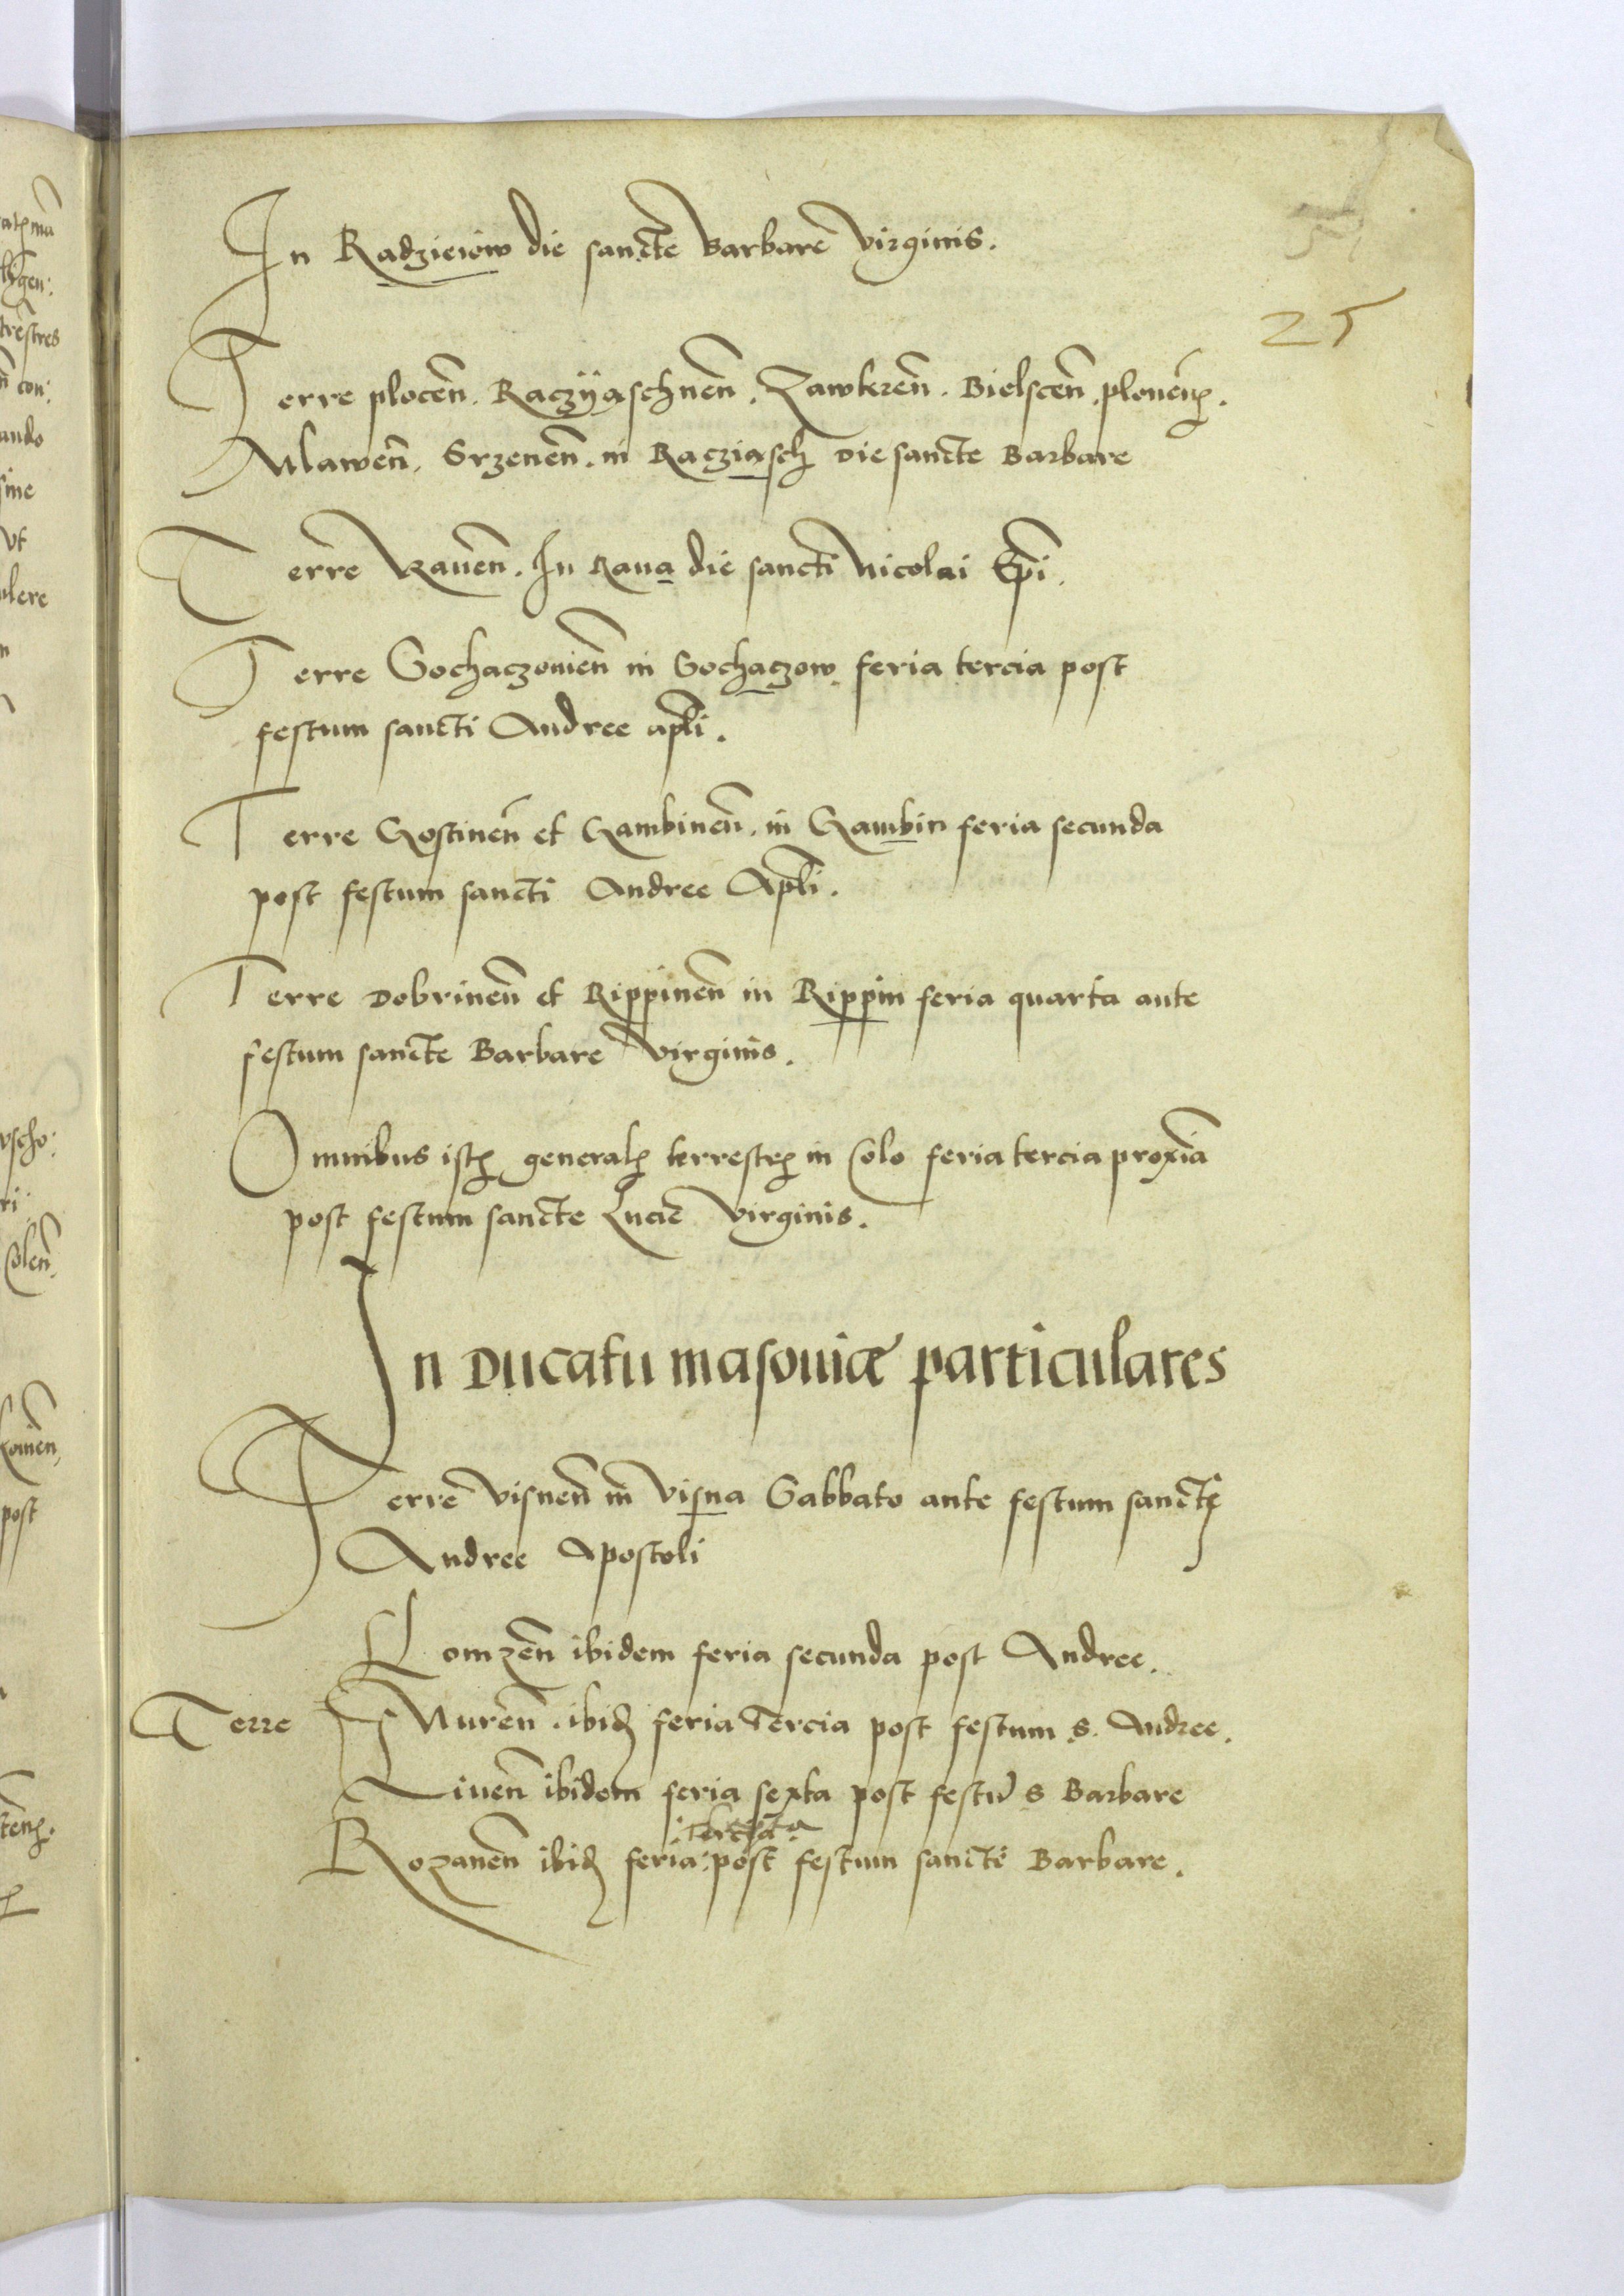 In Radzieiow die sancte Barbare Virginis.
25
Terre plocen̄. Raczÿaschnen̄. Zawkren̄. Bielscen̄. plonen̄ꝭ.
Mlawen̄. Srzenen̄. in Racziasch die sancte Barbare
Terre Rauen̄. In Raua die sancti Nicolai Ep̄i.
Terre Sochaczouien̄ in Sochaczow feria tercia post
festum sancti Andree ap̄li.
Terre Gostinen̄ et Gambinen̄. in Gambin feria secunda
post festum sancti Andree Ap̄li.
Terre Dobrinen̄ et Rippinen̄ in Rippin feria quarta ante
festum sancte Barbare Virginis.
Omnibus istꝭ generalꝭ terrestrꝭ in Colo feria tercia proxīa
post festum sancte Lucie Virginis.
In Ducatu masouiæ particulares
Terre Visnen̄ in Visna Sabbato ante festum sanctꝭ
Andree Apostoli
Lomzen̄ ibidem feria secunda post Andree.
Terre Nuren̄. ibiđ feria Tercia post festum S. Andree.
Liuen̄ ibidem feria sexta post festū S Barbare
Rozanen̄ ibiđ feria: post festum sancte Barbare.